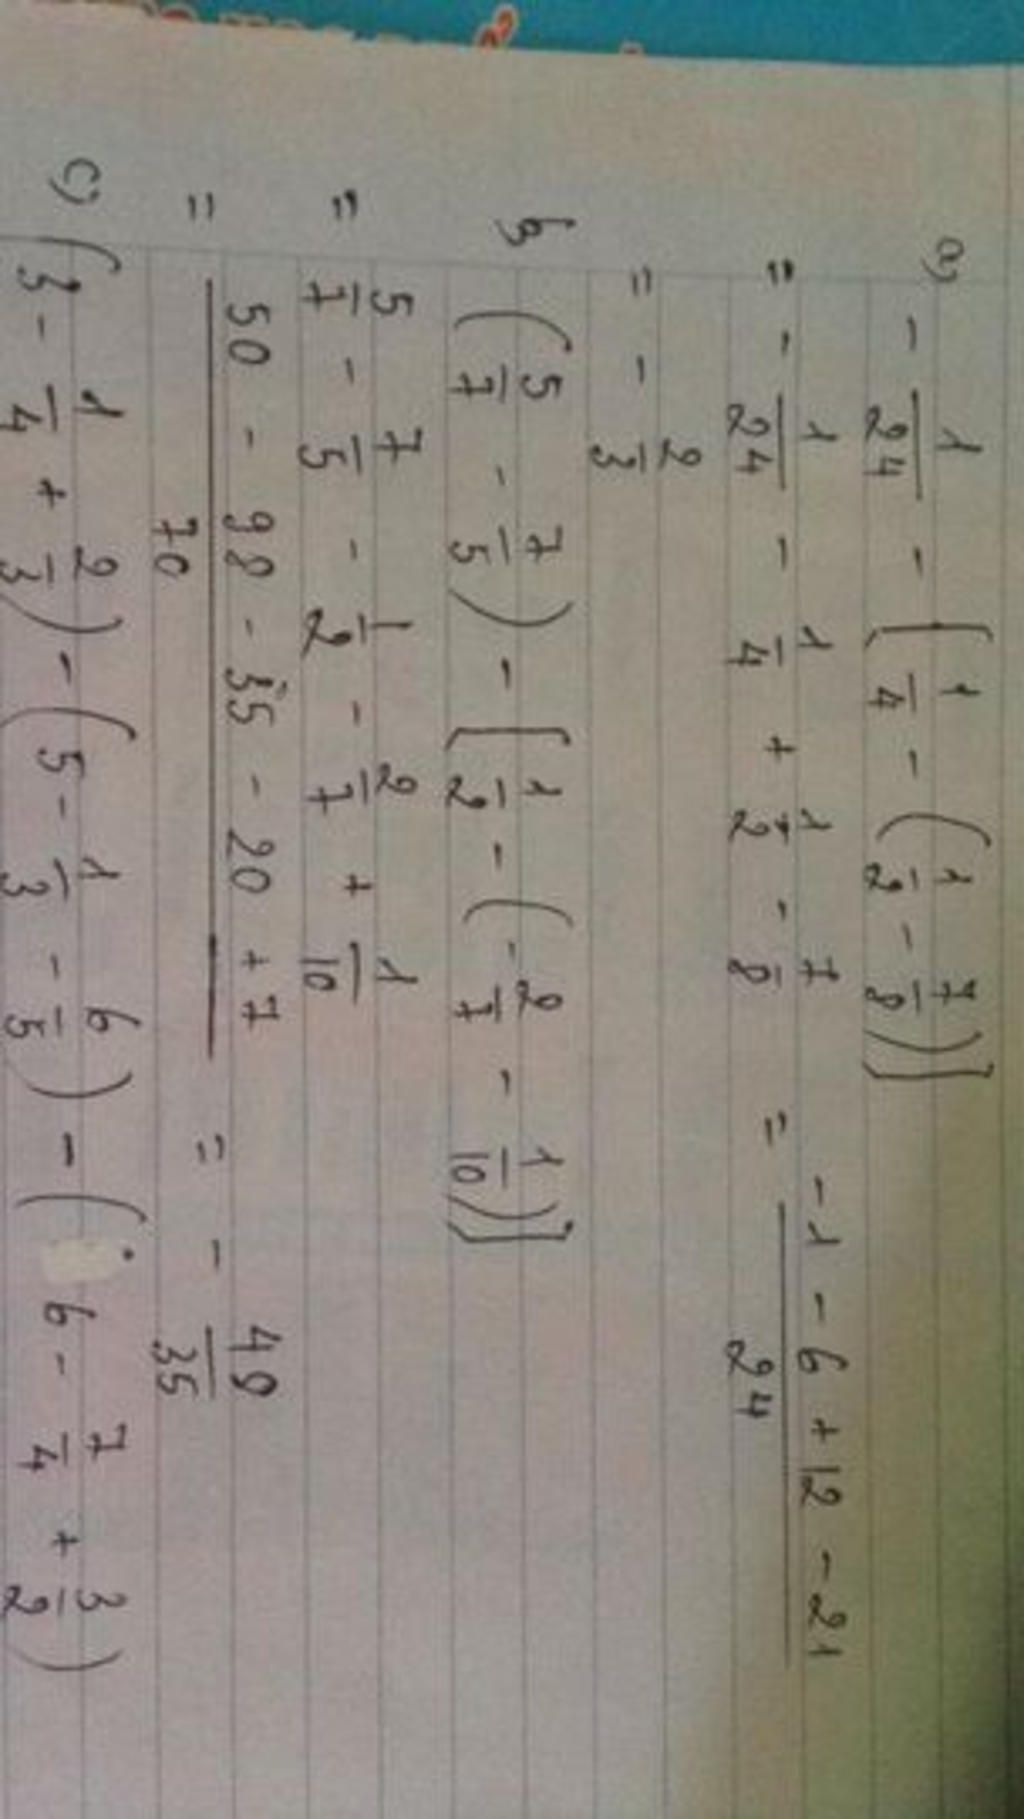 a) - 1/24 - [1/4 - (1/2 - 7/8)]
= - 1/24 - 1/4 + 1/2 - 7/8 = (-1 - 6 + 12 - 21)/24
= - 2/3
b (5/7 - 7/5) - [1/2 - (- 2/7 - 1/10)]
= 5/7 - 7/5 - 1/2 - 2/7 + 1/10
= (50 - 98 - 35 - 20 + 7)/70 = - 49/35
c) (3 - 1/4 + 2/3) - (5 - 1/3 - 6/5) - (6 - 7/4 + 3/2)